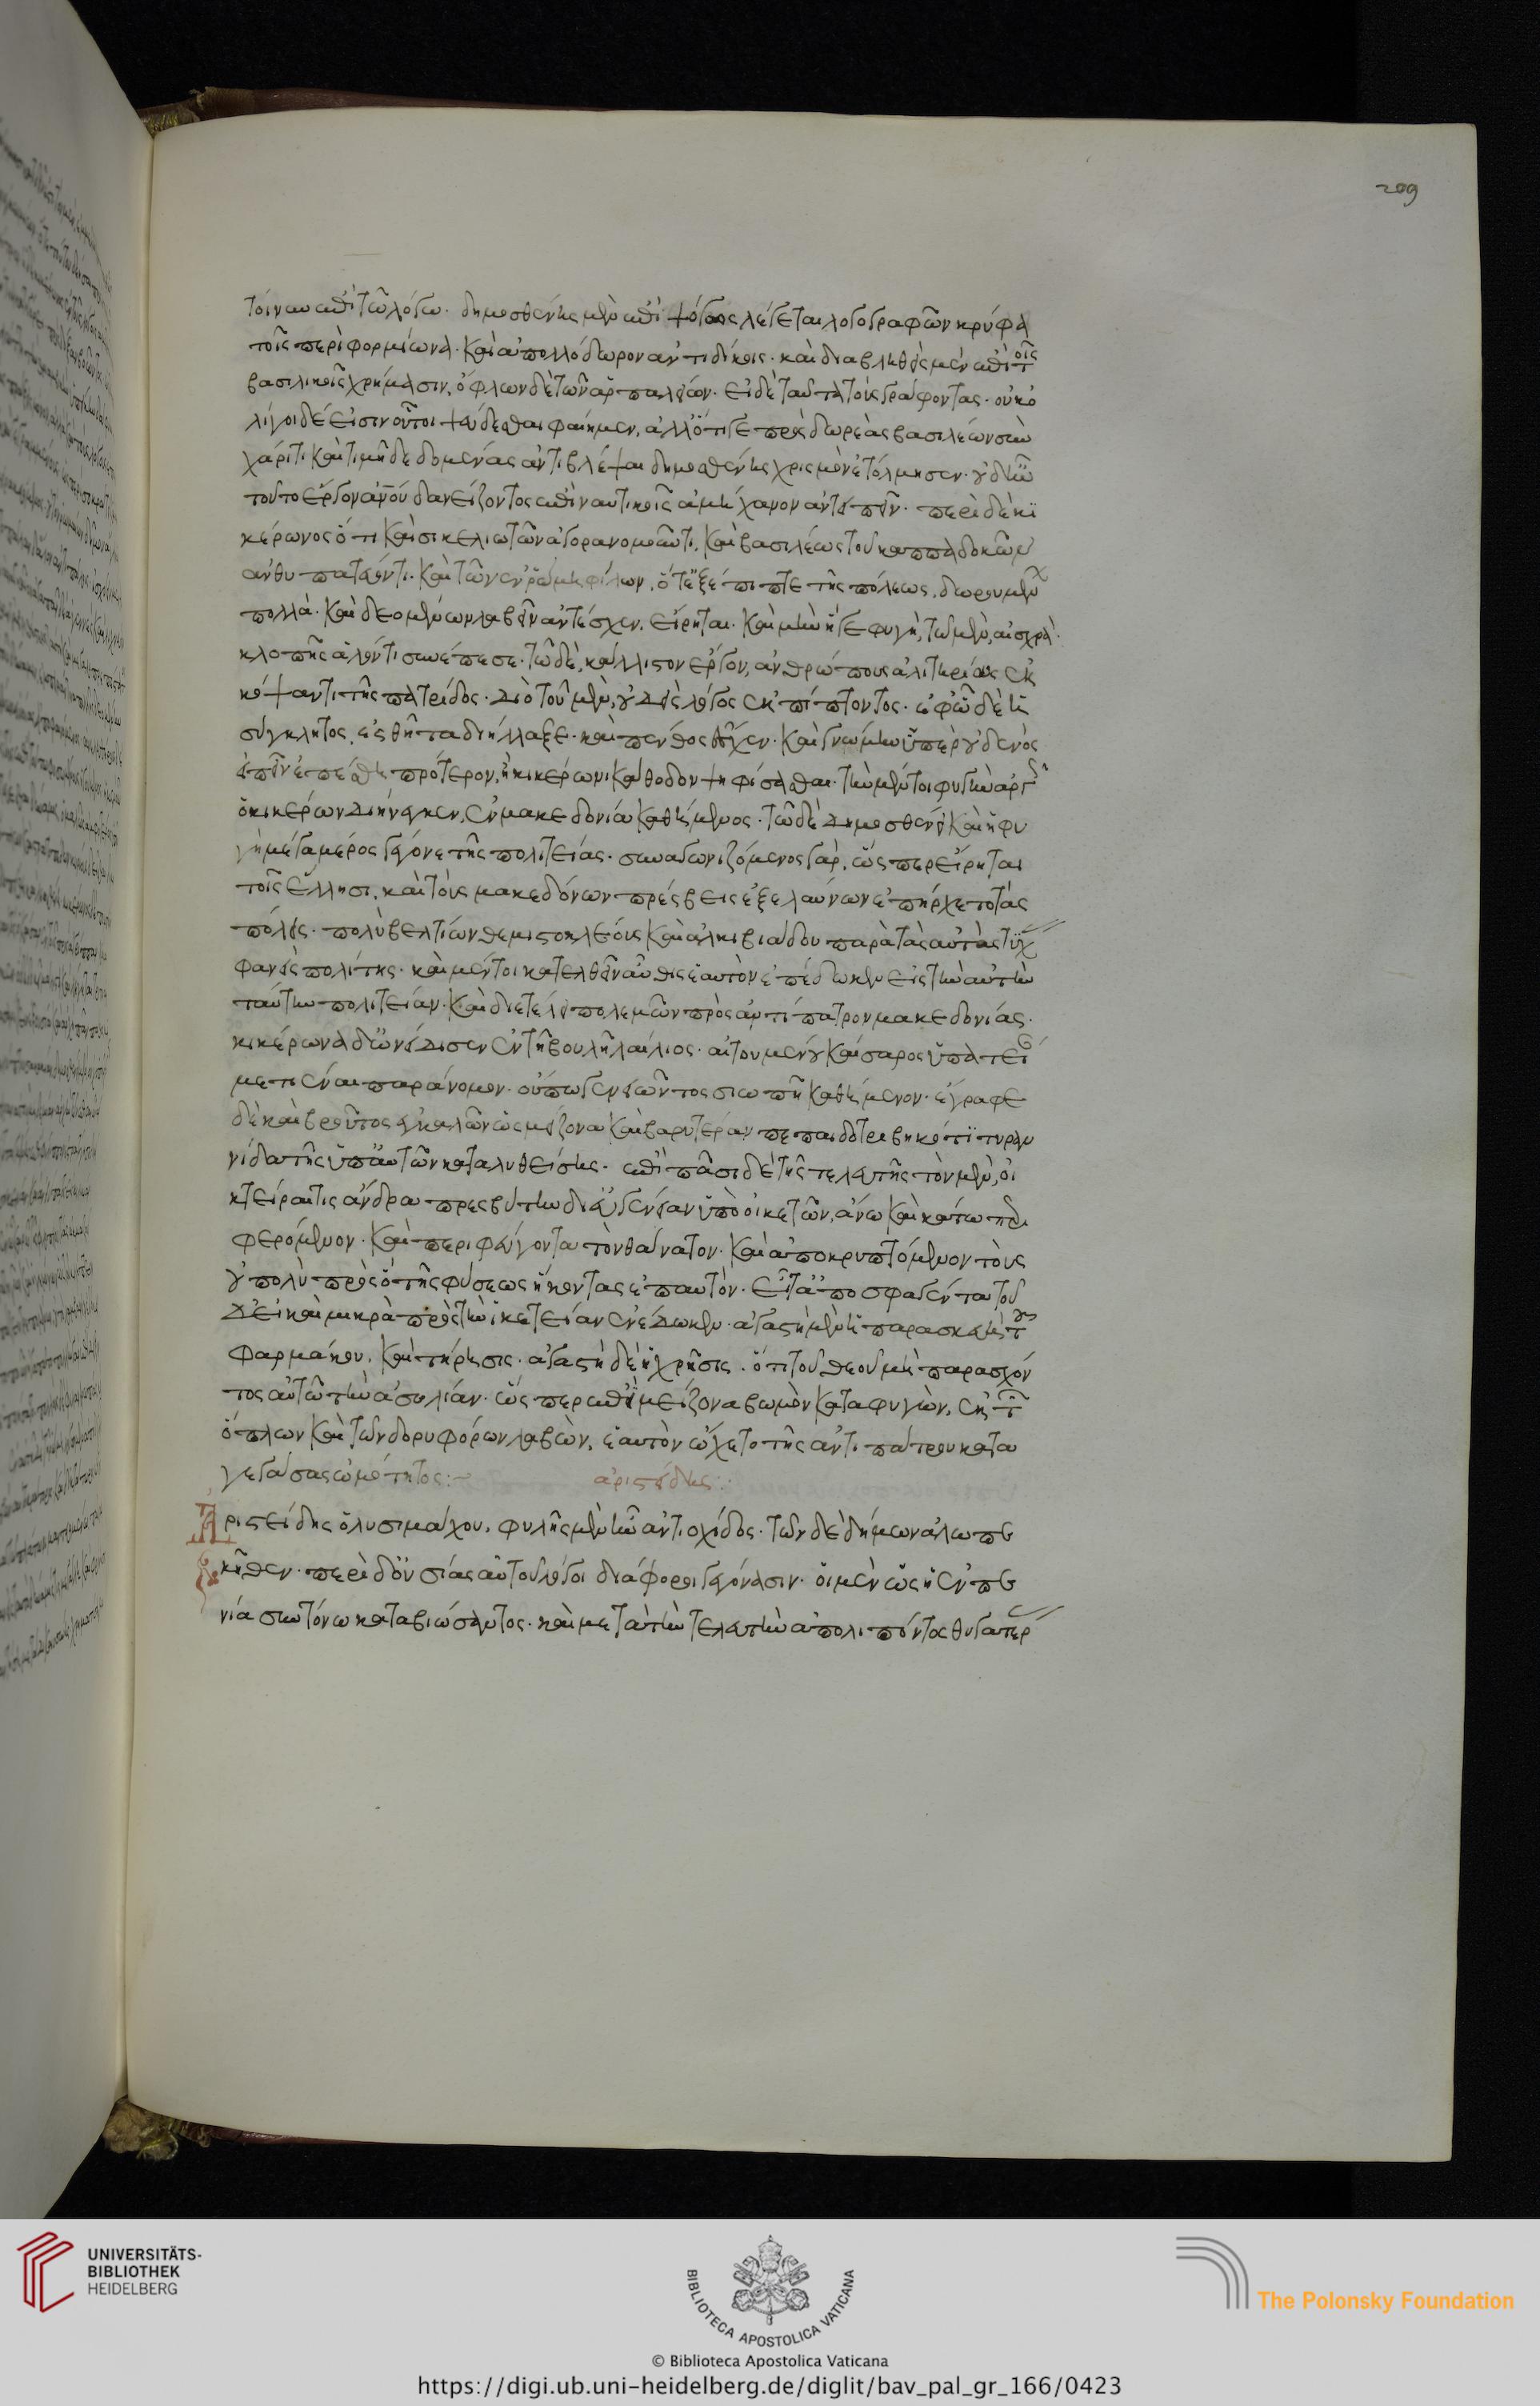 209
τοίνυν ἐπὶ τῶ λόγω. δημοσθένης μὲν ἐπι ψόγοις λέγεται λογογραφῶν κρύφα
τοῖς περὶ φορμίωνα. καὶ ἀπολλόδωρον ἀντιδίκοις. καὶ διαβληθεὶς μὲν ἐπὶ τοῖς
βασιλικοῖς χρήμασιν, ὀφλων δὲ τῶν ἁρπαλείων. εἰ δὲ ταῦτα τοὺς γράφοντας. οὐκ ὀ
λίγοι δέ εἰσιν οὗτοι ψεύδεσθαι φαίημεν, ἀλλ' ὅτι γε πρὸς δωρεὰς βασιλέων σὺν
χάριτι καὶ τιμῆ δεδομένας ἀντιβλέψαι δημοσθένης
τοῦτο ἔργον δανείζοντος ἐπὶ ναυτικοῖς ἀμήχανον ἀντειπεῖν. περὶ δὲ κι
κέρωνος ὅτι καὶ σικελιωτῶν ἀγορανομοῦντι, καὶ βασιλέως τοῦ καππαδοκῶν
ἀνθυπατεύοντι. καὶ τῶν ἐν ῥώμη φίλων, ὅτε ἐξέπιπτε τῆς πόλεως, δωρουμένων
πολλὰ. καὶ δεομένων λαβεῖν ἀντέσχεν, εἴρηται. καὶ μὴν ἥ γε φυγὴ, τῶ μὲν, αἰσχρὰ.
κλοπῆς ἁλόντι συνέπεσε. τῶ δὲ, κάλλιστον ἔργον, ἀνθρώπους ἀλιτηρίους ἐκ
κόψαντι τῆς πατρίδος. διὸ τοῦ μὲν, οὐδεὶς λόγος ἐκπίπτοντος. ἐφ' ῶ δὲ ἡ
σύγκλητος, ἐσθῆτα διήλλαξε. καὶ πένθος ἔσχεν. καὶ γνώμην ὑπὲρ οὐδενὸς
εἰπεῖν ἐπείσθη πρότερον, ἢ κικέρωνι κάθοδον ψηφίσασθαι. τὴν μέντοι φυγὴν ἀργῶς
ὁ κικέρων διήνεγκεν, ἐν μακεδονία καθήμενος. τῶ δὲ δημοσθένει καὶ ἡ φυ
γὴ μέγα μέρος γέγονε τῆς πολιτείας. συναγωνιζόμενος γάρ, ὥσπερ εἴρηται
τοῖς ἕλλησι, καὶ τοὺς μακεδόνων πρέσβεις ἐξελαύνων ἐπήρχετο τὰς
πόλεις. πολὺ βελτίων θεμιστοκλέους καὶ ἀλκιβιάδου παρὰ τὰς αὐτὰς τύχ
φανεὶς πολίτης. καὶ μέντοι κατελθὼν αὖθις ἑαυτὸν ἐπέδωκεν εἰς τὴν αὐτὴν
ταύτην πολιτείαν. καὶ διετέλει πολεμῶν πρὸς ἀντίπατρον μακεδονίας.
κικέρωνα δ' ὠνείδισεν ἐν τῆ βουλῆ λαίλιος. αἰτουμένου καίσαρος ὑπατεί
μετιέναι παράνομον. οὔπω γενειῶντος σιωπῆ καθήμενον. ἔγραφε
δὲ καὶ βροῦτος ἐγκαλῶν ὡς μείζονα καὶ βαρυτέραν πεπαιδοτριβηκότι τυραν
νίδα τῆς ὑπ' αὐτῶν καταλυθείσης. ἐπὶ πᾶσι δὲ τῆς τελευτῆς τὸν μὲν, οἰ
κτείραι τις ἄνδρα πρεσβύτην δι' ἀγένειαν ὑπὸ οἰκετῶν, ἄνω καὶ κάτω περι
φερόμενον. καὶ περιφεύγοντα τὸν θάνατον. καὶ ἀποκρυπτόμενον τοὺς
οὐ πολὺ πρὸ τῆς φύσεως ἥκοντας ἐπ' αὐτὸν. εἶτ' ἀποσφαγέντα τοῦ
δ' εἰ καὶ μικρὰ πρὸς τὴν ἱκετείαν ἐνέδωκεν. ἀγαστὴ μὲν ἡ παρασκευὴ τοῦ
φαρμάκου, καὶ τήρησις. ἀγαστὴ δὲ ἡ χρῆσις. ὅτι τοῦ θεοῦ μὴ παρασχόν
τος αὐτῶ τὴν ἀσυλίαν. ὥσπερ ἐπὶ μείζονα βωμὸν καταφυγὼν, ἐκ τῶν
ὅπλων καὶ τῶν δορυφόρων λαβὼν, ἑαυτὸν ὤχετο τῆς ἀντιπάτρου κατα
γελάσας ὠμότητος:~ ἀριστείδης:
Ἀριστείδης ὁ λυσιμάχου, φυλῆς μὲν ἦν ἀντιοχίδος. τῶν δὲ δήμων ἀλωπε
κῆθεν. περὶ δ' οὐσίας αὐτοῦ λόγοι διάφοροι γεγόνασιν. οἱ μὲν ὡς ἐν πε
νία συντόνω καταβιώσαντος. καὶ μετὰ τὴν τελευτὴν ἀπολιπόντος θυγατέρ
UNIVERSITÄTS-
BIBLIOTHEK
HEIDELBERG
BIBLIOTECA APOSTOLICA VATICANA
The Polonsky Foundation
© Biblioteca Apostolica Vaticana
https://digi.ub.uni-heidelberg.de/diglit/bav_pal_gr_166/0423